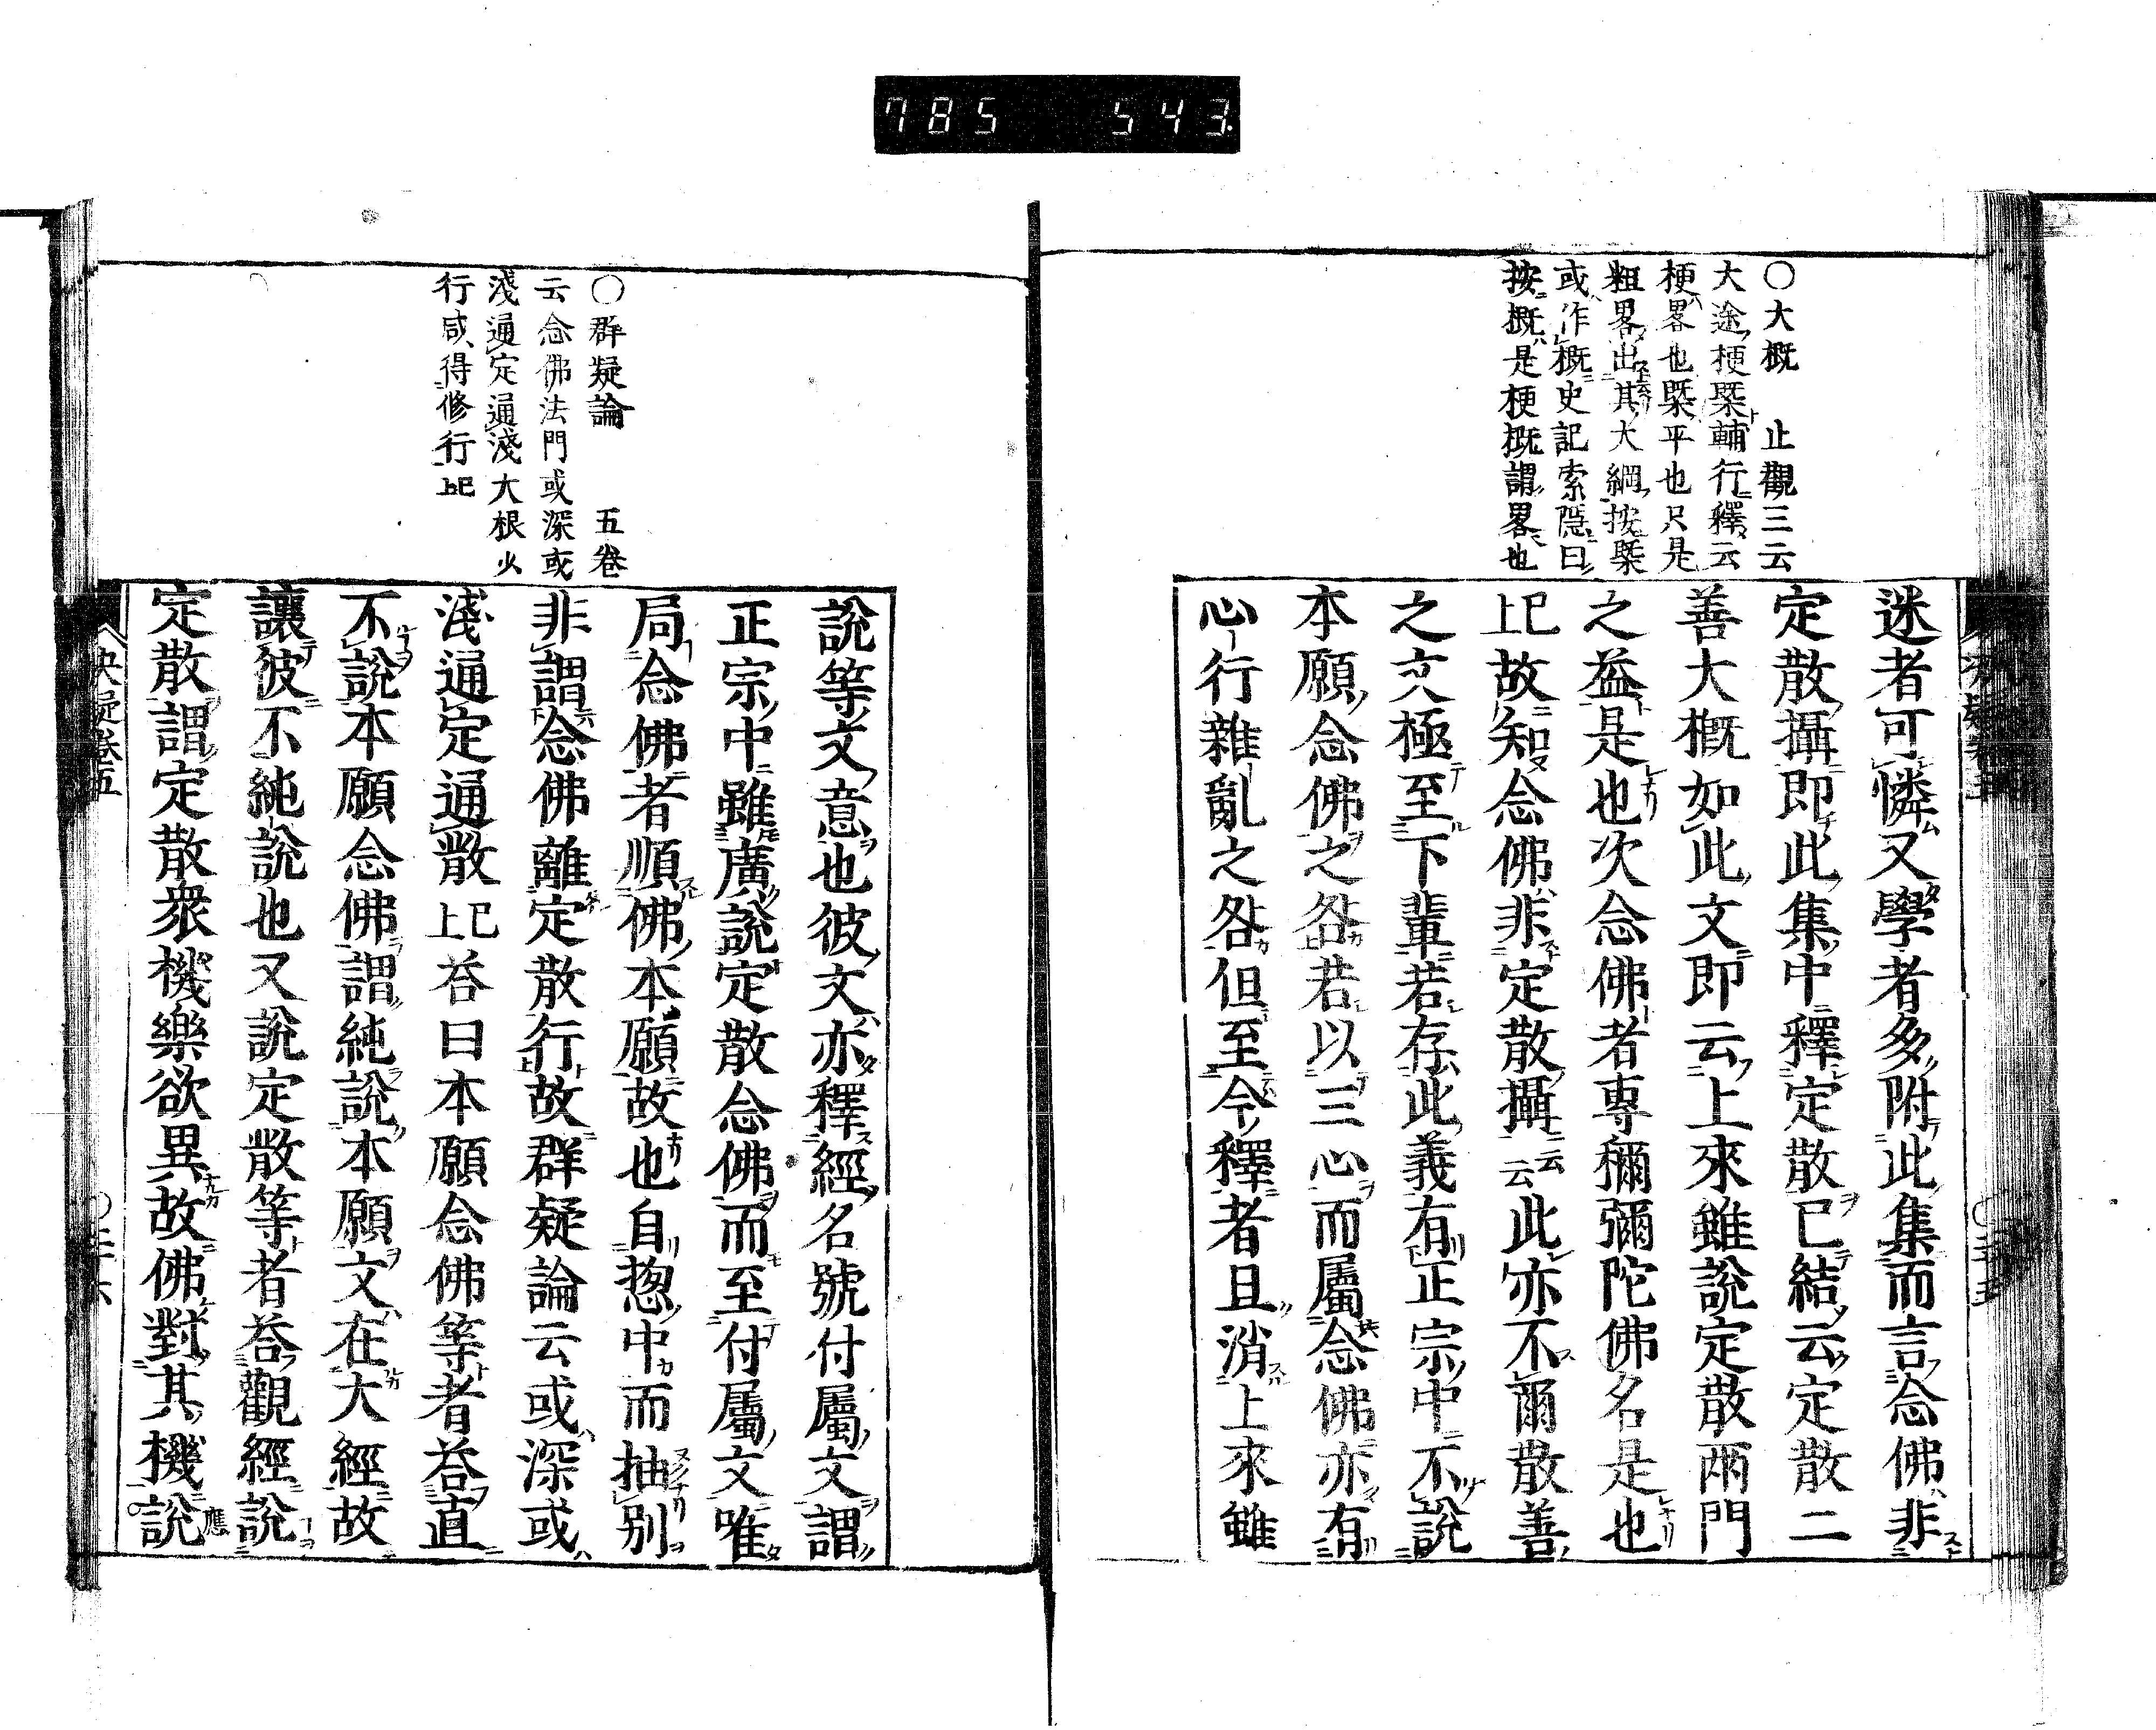 785 543
〇大概 止觀三云
大途梗槩輔行釋云
梗畧也槩平也只是
粗畧出其大綱按槩
或作概史記索隱曰
按概是梗概謂畧也
迷者可憐又學者多附此集而言念佛非
定散攝即此集中釋定散已結云定散二
善大概如此文即云上來雖說定散兩門
之益是也次念佛者專稱彌陀佛名是也
已上故知念佛非定散攝云云此亦不爾散善
之文極至下輩若存此義有正宗中不說
本願念佛之咎若以三心而屬念佛亦有
心行雜亂之咎但至今釋者且消上來雖
〇群疑論 五卷
云念佛法門或深或
淺通定通淺大根火
行咸得修行已上
說等文意也彼文亦釋經名號付屬文謂
正宗中雖廣說定散念佛而至付屬文唯
局念佛者順佛本願故也自揔中而抽別
非謂念佛離定散行故群疑論云或深或
淺通定通散已上荅曰本願念佛等者荅直
不說本願念佛謂純說本願文在大經故
讓彼不純說也又說定散等者荅觀經說
定散謂定散衆機樂欲異故佛對其機說
決疑卷五
〇二十六